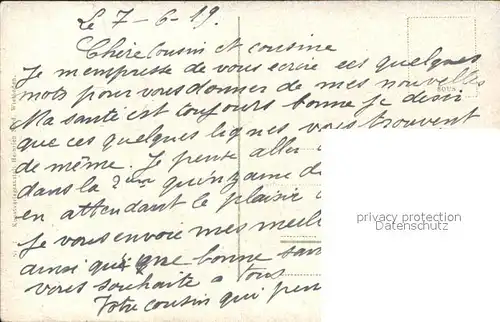 Le 7-6-19.
Chère Cousin et cousine
Je m'empresse de vous ecrire ces quelques
mots pour vous donner de mes nouvelles
Ma santé est toujours bonne je desir
que ces quelques lignes vous trouvent
de même. Je pense aller
dans la 2eme quinzaine d
en attendant le plaisir
Je vous envoie mes meill
ainsi que bonne san
vous souhaite a tous
Votre cousin qui pen
privacy protection
Datenschutz